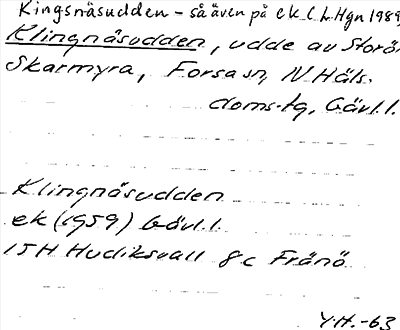 Kingsnäsudden - så även på ek L. Hgn 1989
Klingnäsudden, udde av Storön
Skarmyra, Forsa sn, N. Häls.
doms.tg, Gävl.l.
Klingnäsudden
ek (1959) Gävl.l.
15H Hudiksvall 8c Frånö
Y.H.-63